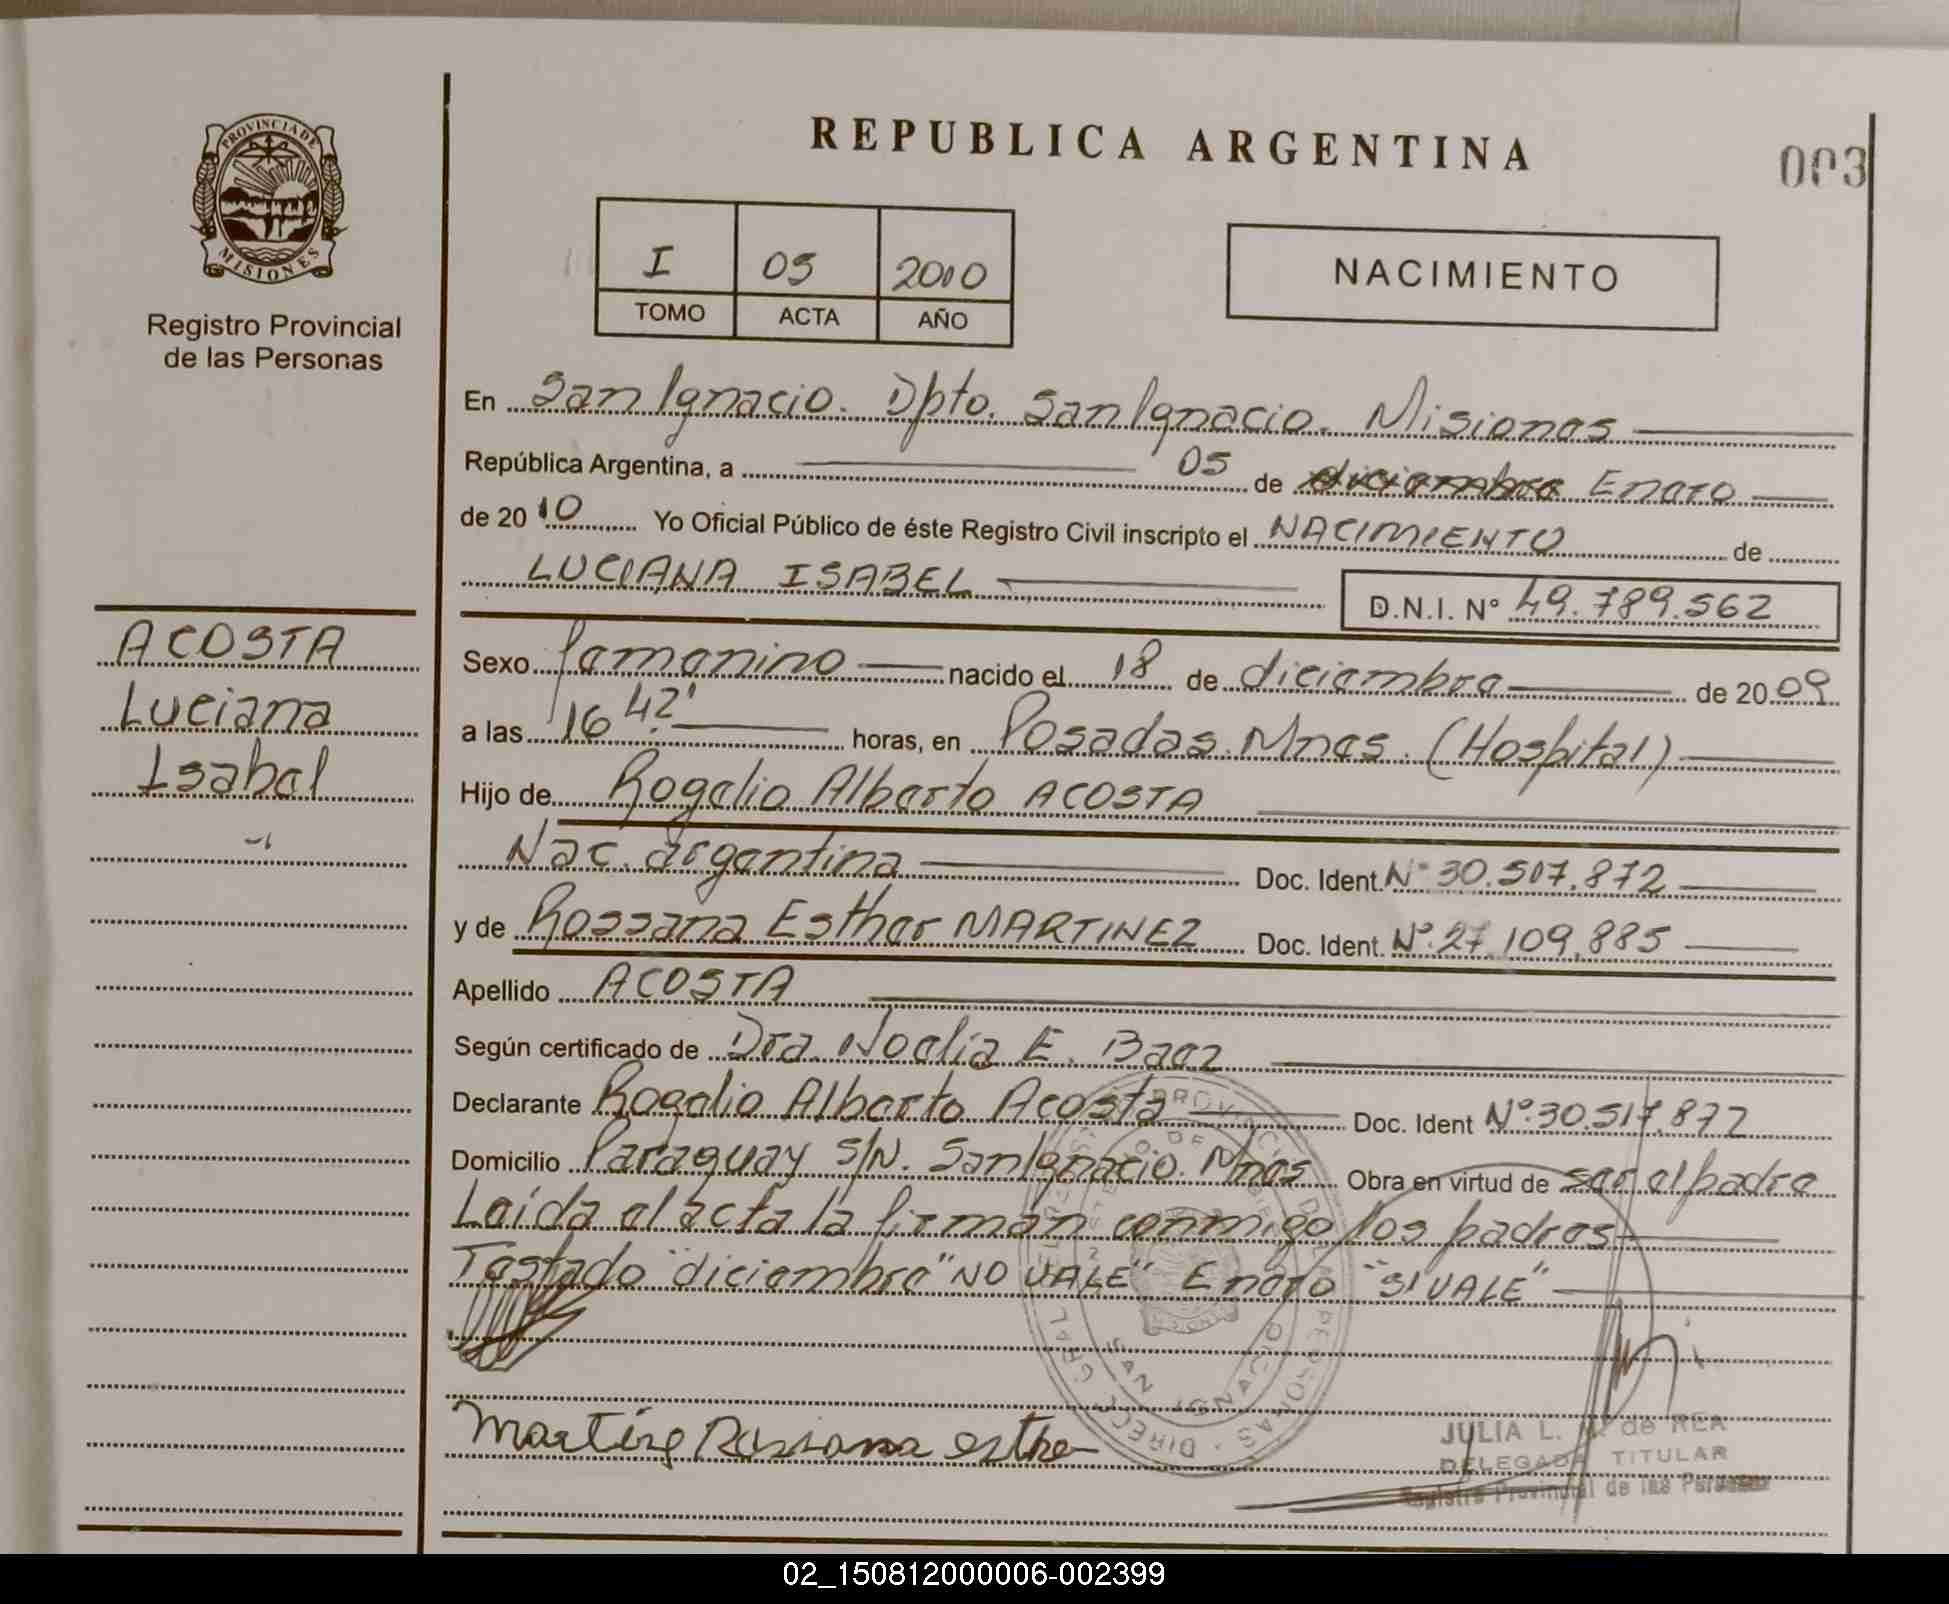 REPUBLICA ARGENTINA
003
PROVINCIA DE
MISIONES
Registro Provincial
de las Personas
I 05 2010
TOMO ACTA AÑO
NACIMIENTO
En San Ignacio. Dpto. San Ignacio. Misiones
República Argentina, a 05 de diciembre Enero
de 2010 Yo Oficial Público de éste Registro Civil inscripto el NACIMIENTO de
LUCIANA ISABEL D.N.I. N° 49.789.562
ACOSTA
Luciana
Isabel
Sexo femenino nacido el 18 de diciembre de 2009
a las 16 42' horas, en Posadas. Mnes. (Hospital)
Hijo de Rogelio Alberto ACOSTA
Nac. argentina Doc. Ident. N° 30.517.872
y de Rossana Esther MARTINEZ Doc. Ident. N°. 27.109.885
Apellido ACOSTA
Según certificado de Dra. Noelia E. Baez
Declarante Rogelio Alberto Acosta Doc. Ident N°. 30.517.872
Domicilio Paraguay S/N. San Ignacio. Mnes Obra en virtud de ser el padre
Leída el acta la firman conmigo los padres
Testado "diciembre" "NO VALE" Enero "SI VALE"
Martínez Rossana esther
JULIA L. M. de REA
DELEGADA TITULAR
Registro Provincial de las Personas
02_150812000006-002399